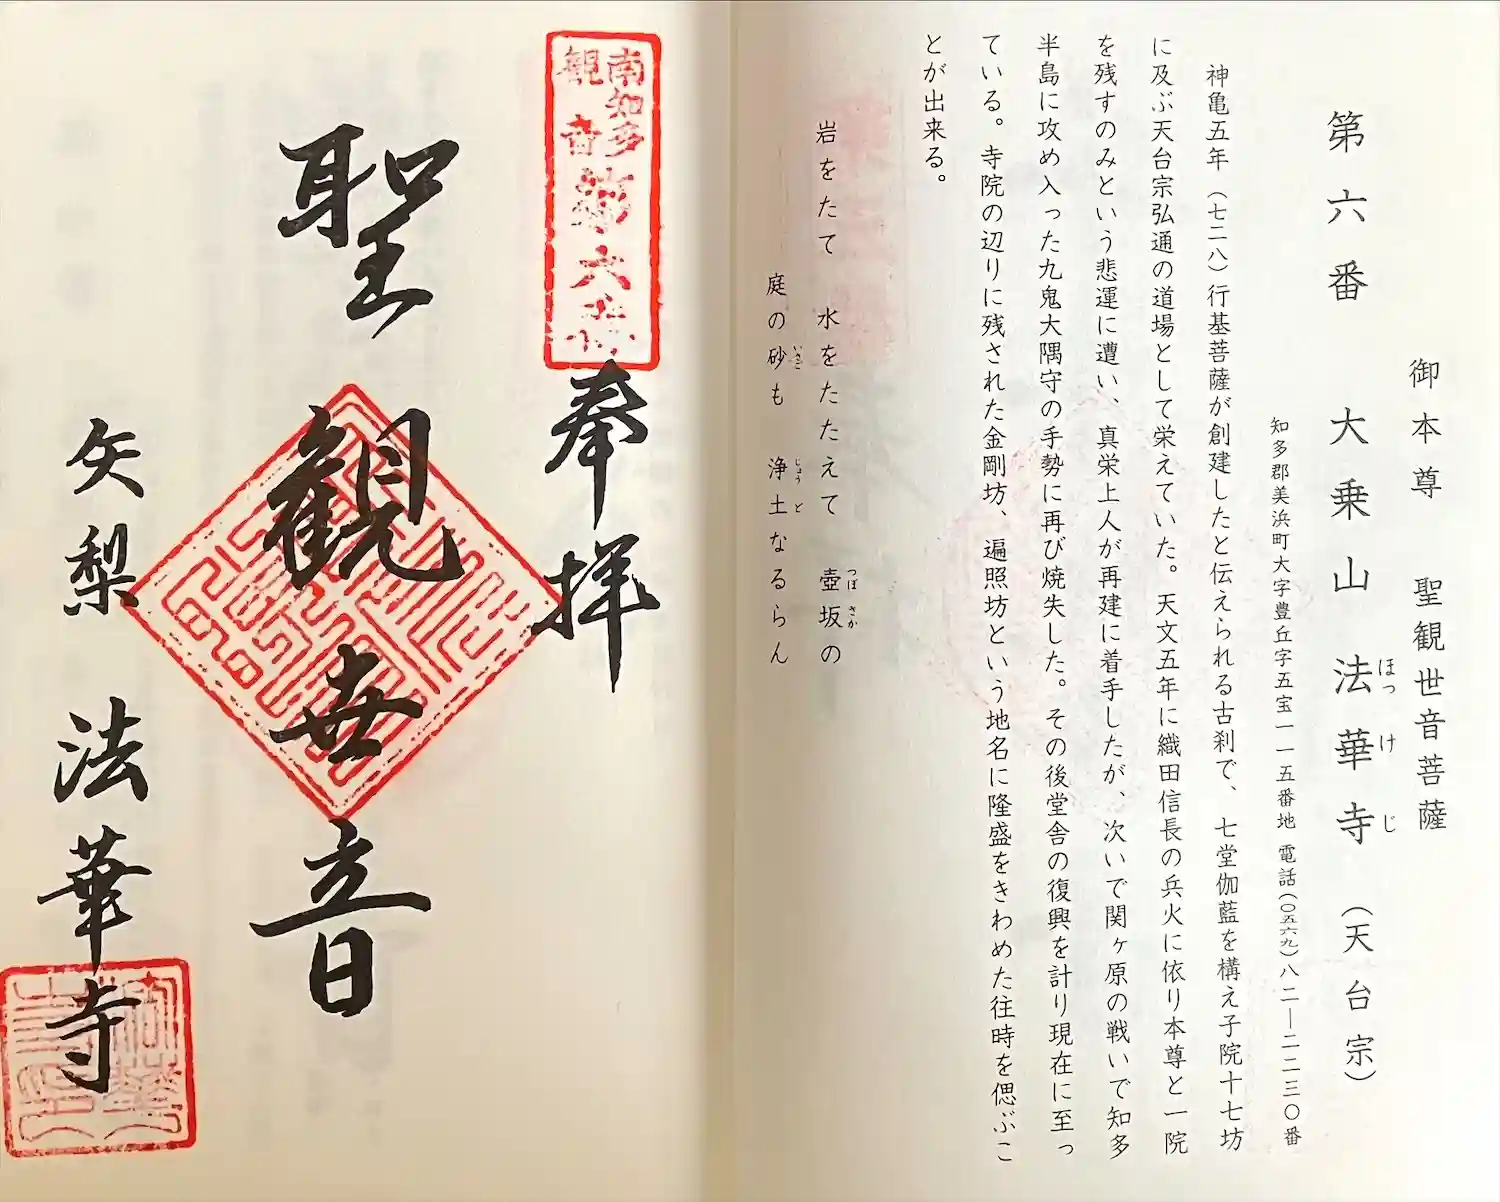 御本尊 聖観世音菩薩
第六番 大乗山法華寺（天台宗）
ほっけじ
知多郡美浜町大字豊丘字五宝一一五番地 電話(〇五六九)八二―二二三〇番
神亀五年（七二八）行基菩薩が創建したと伝えられる古刹で、七堂伽藍を構え子院十七坊
に及ぶ天台宗弘通の道場として栄えていた。天文五年に織田信長の兵火に依り本尊と一院
を残すのみという悲運に遭い、真栄上人が再建に着手したが、次いで関ヶ原の戦いで知多
半島に攻め入った九鬼大隅守の手勢に再び焼失した。その後堂舎の復興を計り現在に至っ
ている。寺院の辺りに残された金剛坊、遍照坊という地名に隆盛をきわめた往時を偲ぶこ
とが出来る。
岩をたて 水をたたえて 壺坂の
つぼさか
庭の砂も 浄土なるらん
いさご じょうど
南知多
観音
第六番
奉拝
聖観世音
矢梨 法華寺